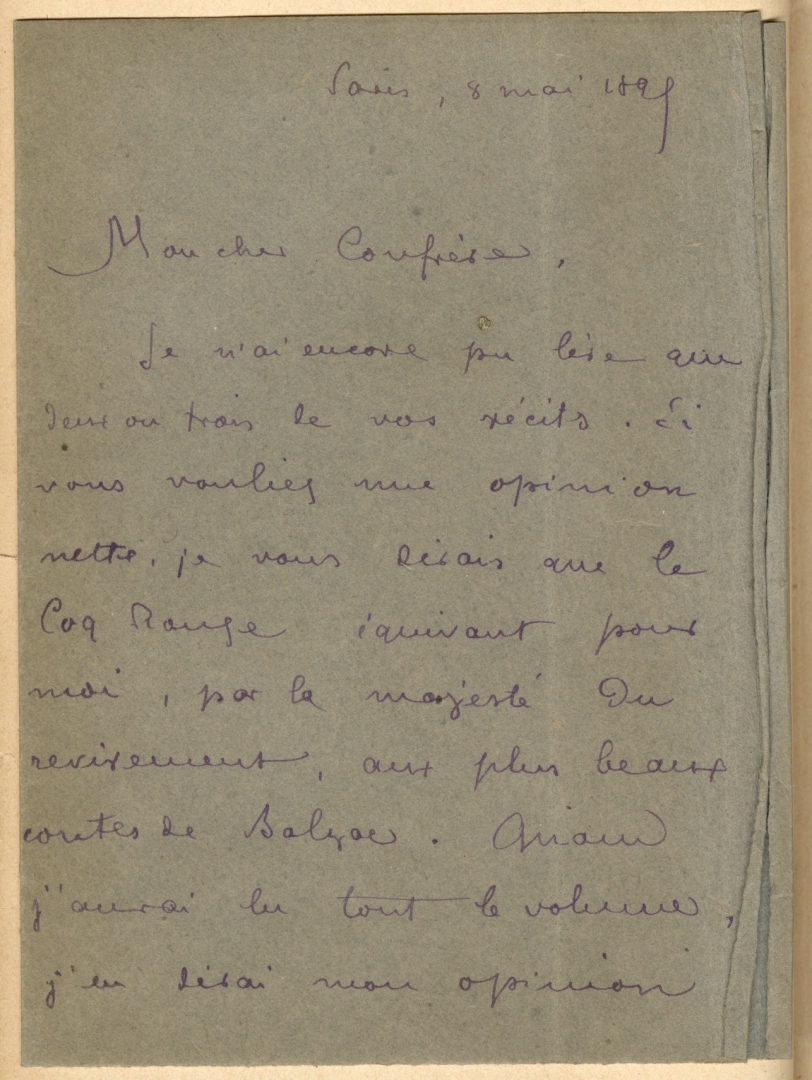 Paris, 8 mai 1895
Mon cher Confrère,
Je n'ai encore pu lire que
deux ou trois de vos récits. Si
vous vouliez une opinion
nette, je vous dirais que le
Coq Rouge équivaut pour
moi, par la majesté du
revirement, aux plus beaux
contes de Balzac. Quand
j'aurai lu tout le volume,
j'en dirai mon opinion